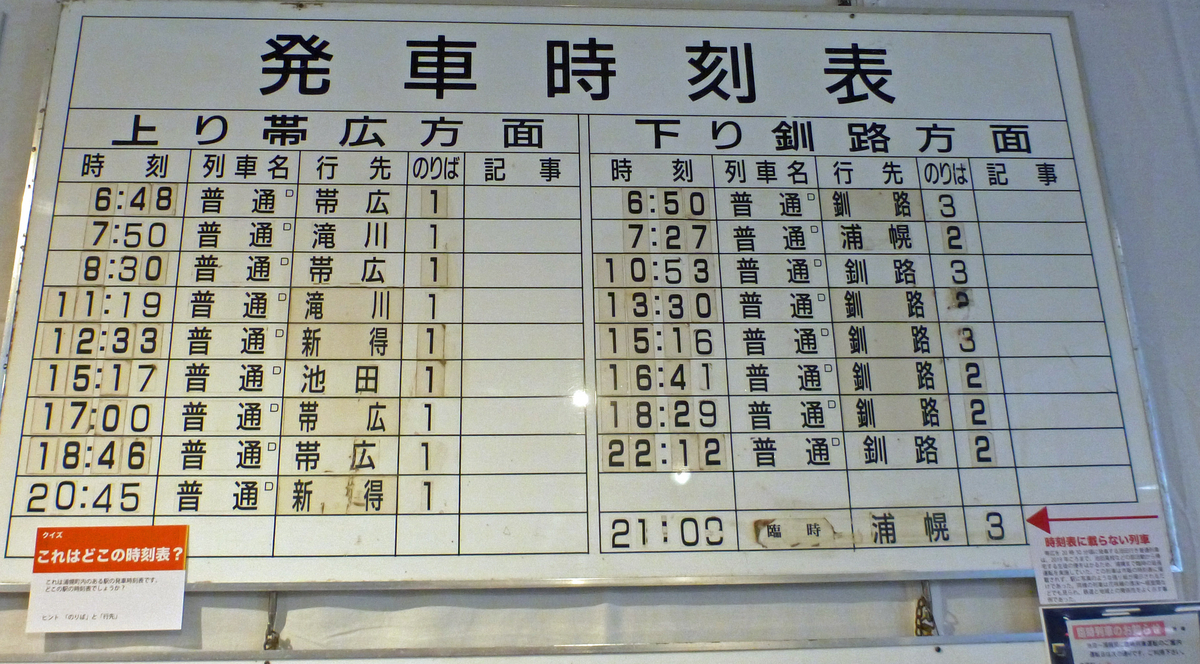 発車時刻表
上り帯広方面
時刻 列車名 行先 のりば 記事
6:48 普通 帯広 1
7:50 普通 滝川 1
8:30 普通 帯広 1
11:19 普通 滝川 1
12:33 普通 新得 1
15:17 普通 池田 1
17:00 普通 帯広 1
18:46 普通 帯広 1
20:45 普通 新得 1
下り釧路方面
時刻 列車名 行先 のりば 記事
6:50 普通 釧路 3
7:27 普通 浦幌 2
10:53 普通 釧路 3
13:30 普通 釧路 2
15:16 普通 釧路 3
16:41 普通 釧路 2
18:29 普通 釧路 2
22:12 普通 釧路 2
21:00 臨時 浦幌 3
クイズ
これはどこの時刻表?
これは浦幌町内のある駅の発車時刻表です。
どこの駅の時刻表でしょうか?
ヒント 「のりば」と「行先」
時刻表に載らない列車
臨時列車のお知らせ